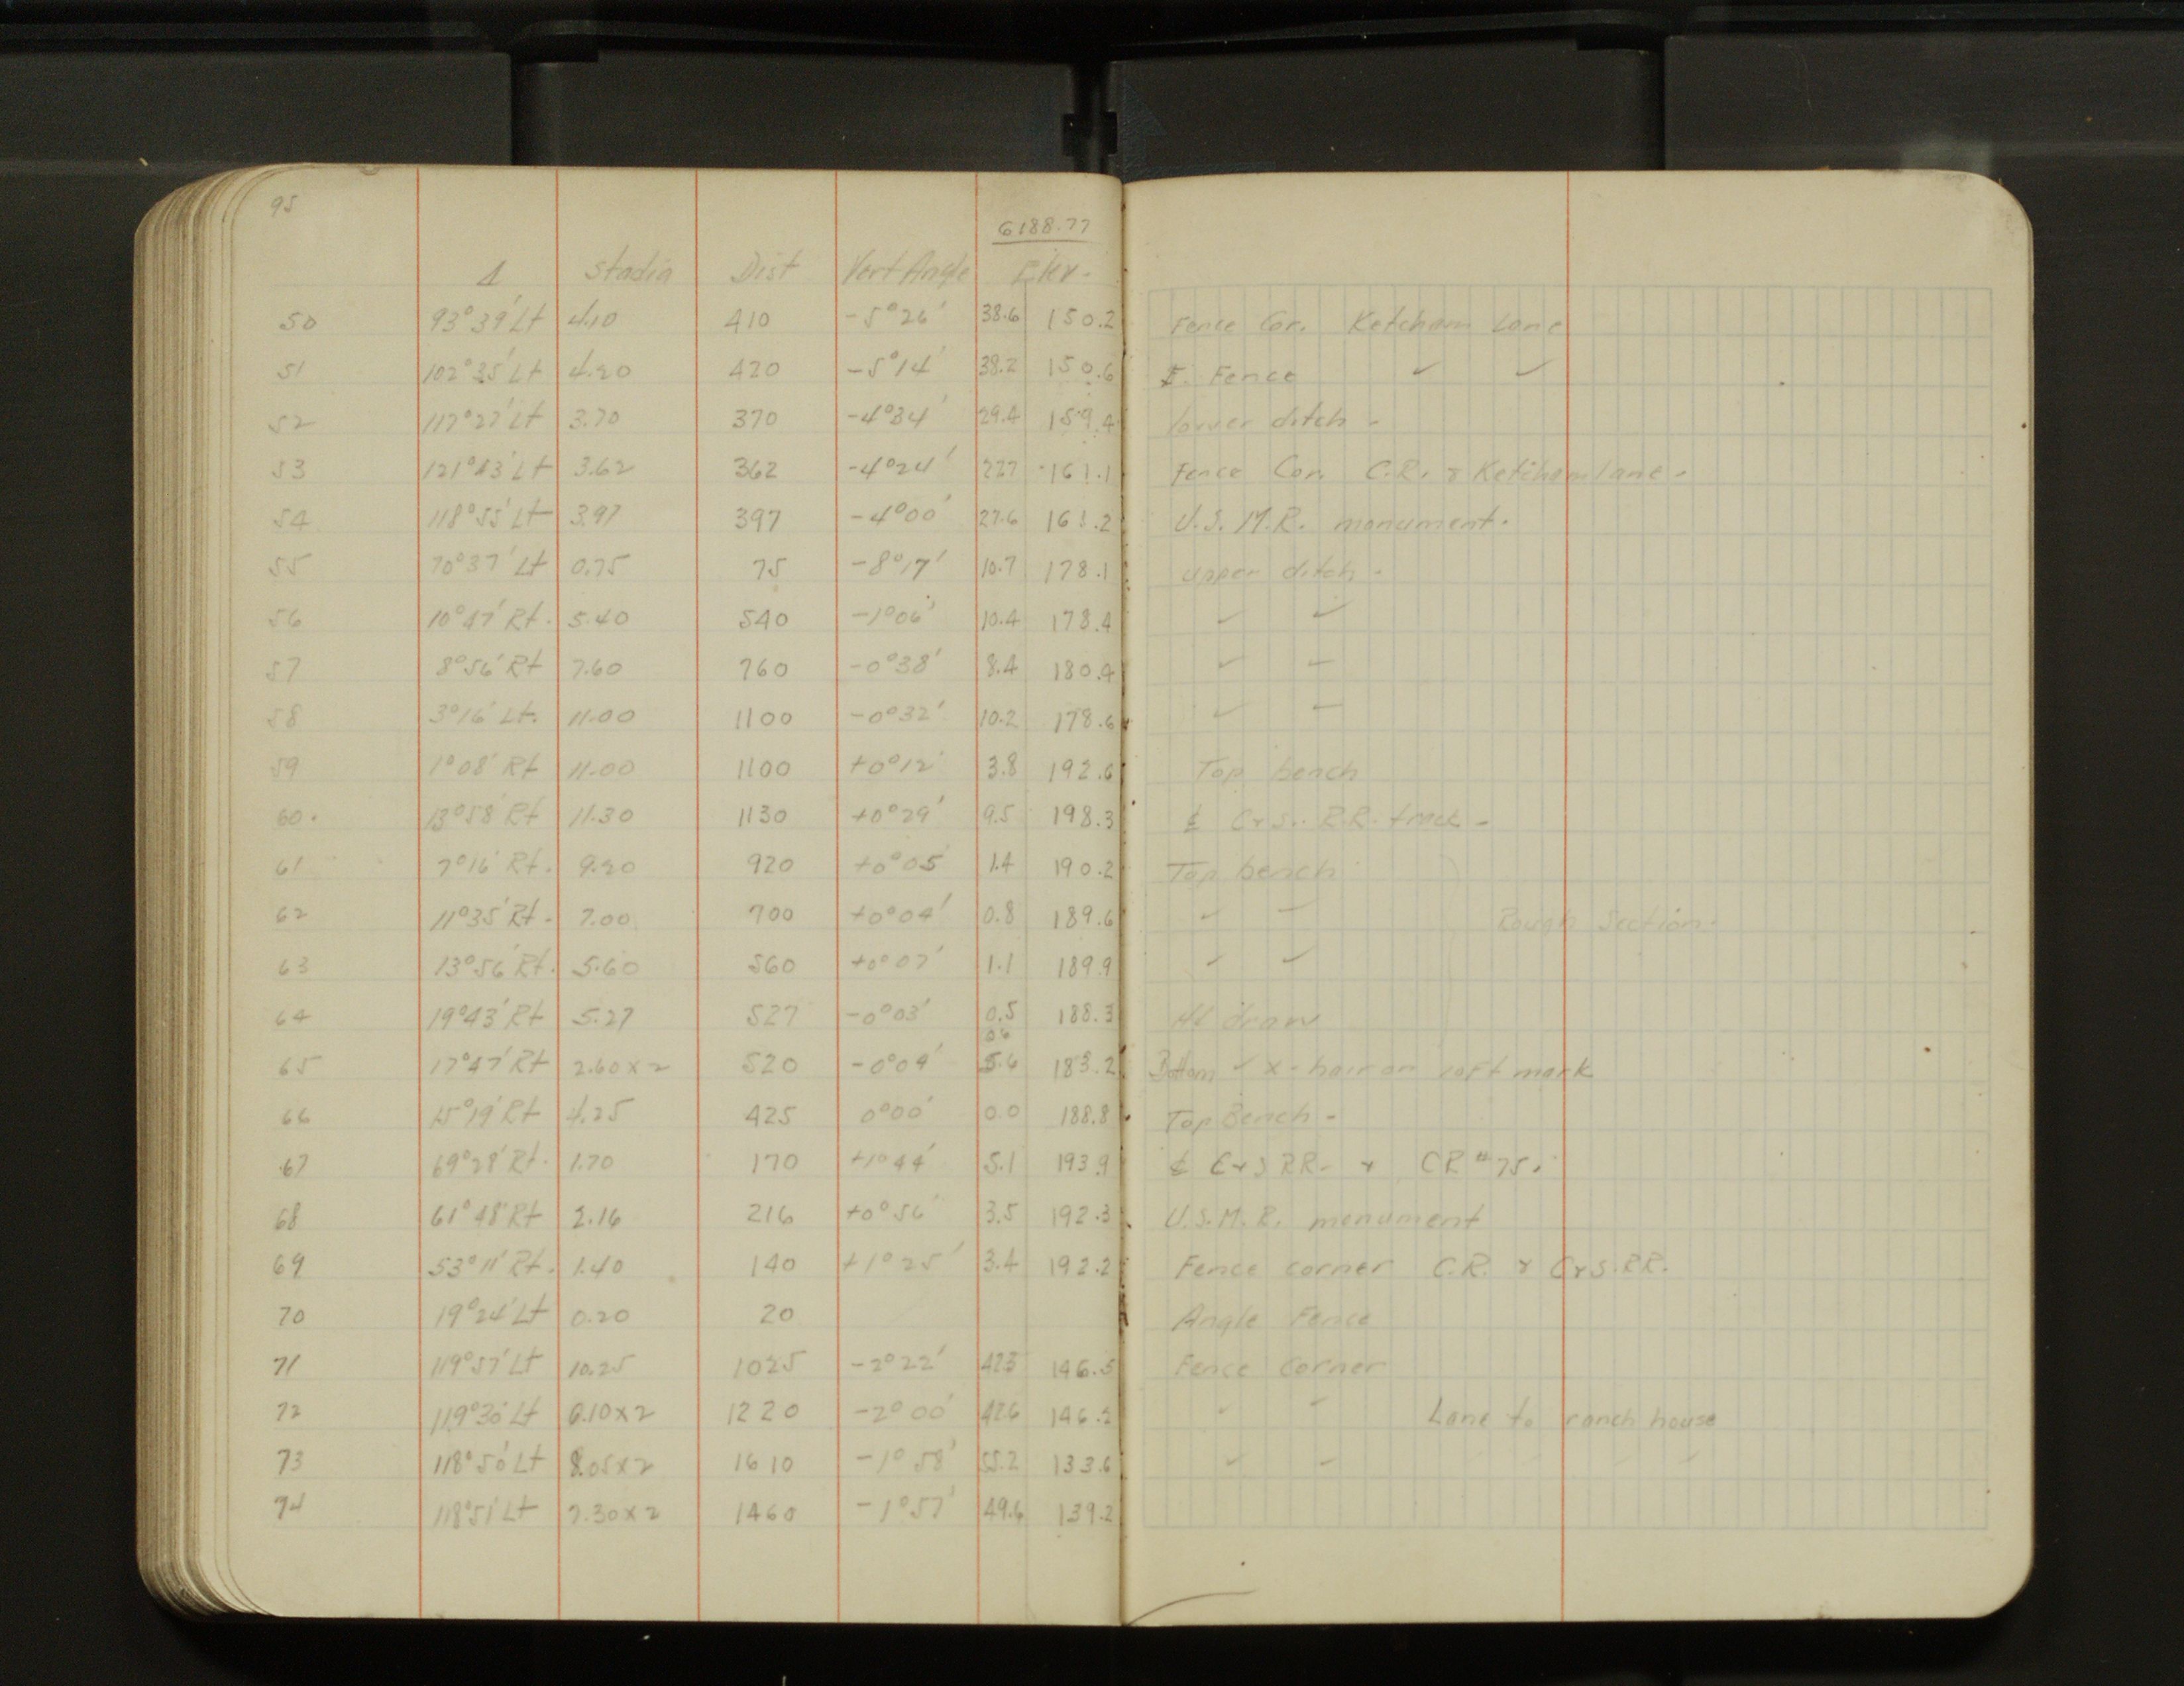 95
6188.77
Δ Stadia Dist Vert Angle Elev.
50 93°39' Lt 4.10 410 -5°26' 38.6 150.2 Fence Cor. Ketcham Lane
51 102°35' Lt 4.20 420 -5°14' 38.2 150.6 Fence ✓ ✓
52 117°27' Lt 3.70 370 -4°34' 29.4 159.4 lower ditch -
53 121°43' Lt 3.62 362 -4°24' 27.7 161.1 Fence Cor. C.R. & Ketcham lane -
54 118°55' Lt 3.97 397 -4°00' 27.6 161.2 U.S.M.R. monument.
55 70°37' Lt 0.75 75 -8°17' 10.7 178.1 upper ditch -
56 10°47' Rt. 5.40 540 -1°06' 10.4 178.4 ✓ ✓
57 8°56' Rt 7.60 760 -0°38' 8.4 180.4 ✓ ✓
58 3°16' Lt. 11.00 1100 -0°32' 10.2 178.6 ✓ ✓
59 1°08' Rt 11.00 1100 +0°12' 3.8 192.6 Top bench
60. 13°58' Rt 11.30 1130 +0°29' 9.5 198.3 ℄ C & S. R.R. track -
61 7°16' Rt. 9.20 920 +0°05' 1.4 190.2 Top bench
62 11°35' Rt. 7.00 700 +0°04' 0.8 189.6 ✓ ✓ Rough Section -
63 13°56' Rt. 5.60 560 +0°07' 1.1 189.9 ✓ ✓
64 19°43' Rt 5.27 527 -0°03' 0.5 188.3 At draw
0.6
65 17°47' Rt 2.60x2 520 -0°04' 5.6 183.2 Bottom ✓ x-hair on 10ft mark
66 15°19' Rt 4.25 425 0°00' 0.0 188.8 Top Bench -
67 69°28' Rt. 1.70 170 +1°44' 5.1 193.9 ℄ C & S RR. & CR #75.
68 61°48' Rt 2.16 216 +0°56' 3.5 192.3 U.S.M.R. monument
69 53°11' Rt. 1.40 140 +1°25' 3.4 192.2 Fence corner C.R. & C & S. R.R.
70 19°24' Lt 0.20 20 Angle Fence
71 119°57' Lt 10.25 1025 -2°22' 42.3 146.5 Fence Corner
72 119°30' Lt 6.10x2 1220 -2°00' 42.6 146.2 ✓ ✓ Lane to ranch house
73 118°50' Lt 8.05x2 1610 -1°58' 55.2 133.6 ✓ ✓
74 118°51' Lt 7.30x2 1460 -1°57' 49.6 139.2